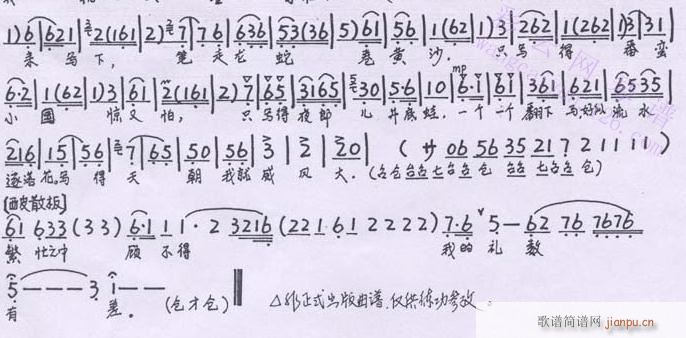 1)6|621|2(161|2)7|76|636|53(36|5)61|56|1(62|1)3|262|1(262|1)3|31
来 写 下， 笔 走 龙 蛇 卷 黄 沙． 只 写 得 番 蛮
6·2|1(62|1)3|61|2(161|2)7|65|3165|30|5·6|10|6·1|61|361|621|6535
mp
小 国 惊 又 怕， 只 写得 夜 郎 儿 井 底 蛙． 一 个 一 个 翻 下 马 好似 流 水
216|15|56|7|65|50|56|3|2|20| (サ 06 56 35 21 7 2 1 1 1 1)
逐 落 花．写 得 天 朝 我就 威 风 大．
[西皮散板]
61 633 (33) 6·1 1 1·2 3216 (221·61 2222) 7·6 5— 62 76 7676
繁 忙之中 顾 不 得 我的 礼 数
5——— 3 1——
有 差． (仓才仓) △非正式出版曲谱．仅供练功参改。
歌谱简谱网 jianpu.cn